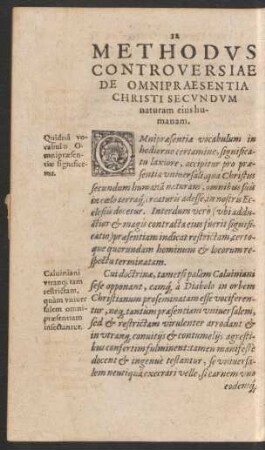 METHODVS
CONTROVERSIAE
DE OMNIPRAESENTIA
CHRISTI SECVNDVM
naturam eius hu-
manam.
Quidnā vo-
cabulo O-
mnipræsen-
tiæ significe-
tur.
OMnipræsentiæ vocabulum in
hodierno certamine, significa-
tu laxiore, accipitur pro præ-
sentia vniuersali, qua Christus
secundum humanā naturam, omnibus suis
in cælo terraq́; creaturis adesse, in nostris Ec-
clesiis docetur. Interdum vero (vbi addu-
ctior & magis contracta eius fuerit significa-
tio) præsentiam indicat restrictam, certo-
que quorundam hominum & locorum re-
spectu terminatam.
Caluiniani
vtranq; tam
restrictam,
quàm vniuer
salem omni-
præsentiam
insectantur.
Cui doctrinæ, tametsi palàm Caluiniani
sese opponant, eamq́; à Diabolo in orbem
Christianum proseminatam esse vociferen-
tur, neq; tantum præsentiam vniuersalem,
sed & restrictam virulenter arrodant &
in vtranq; conuitijs & contumelijs agresti-
bus confertim fulminent: tamen manifestè
docent & ingenuè testantur, se vniuersa-
lem neutiquā execrari velle, si carnem vno
eodemq́;